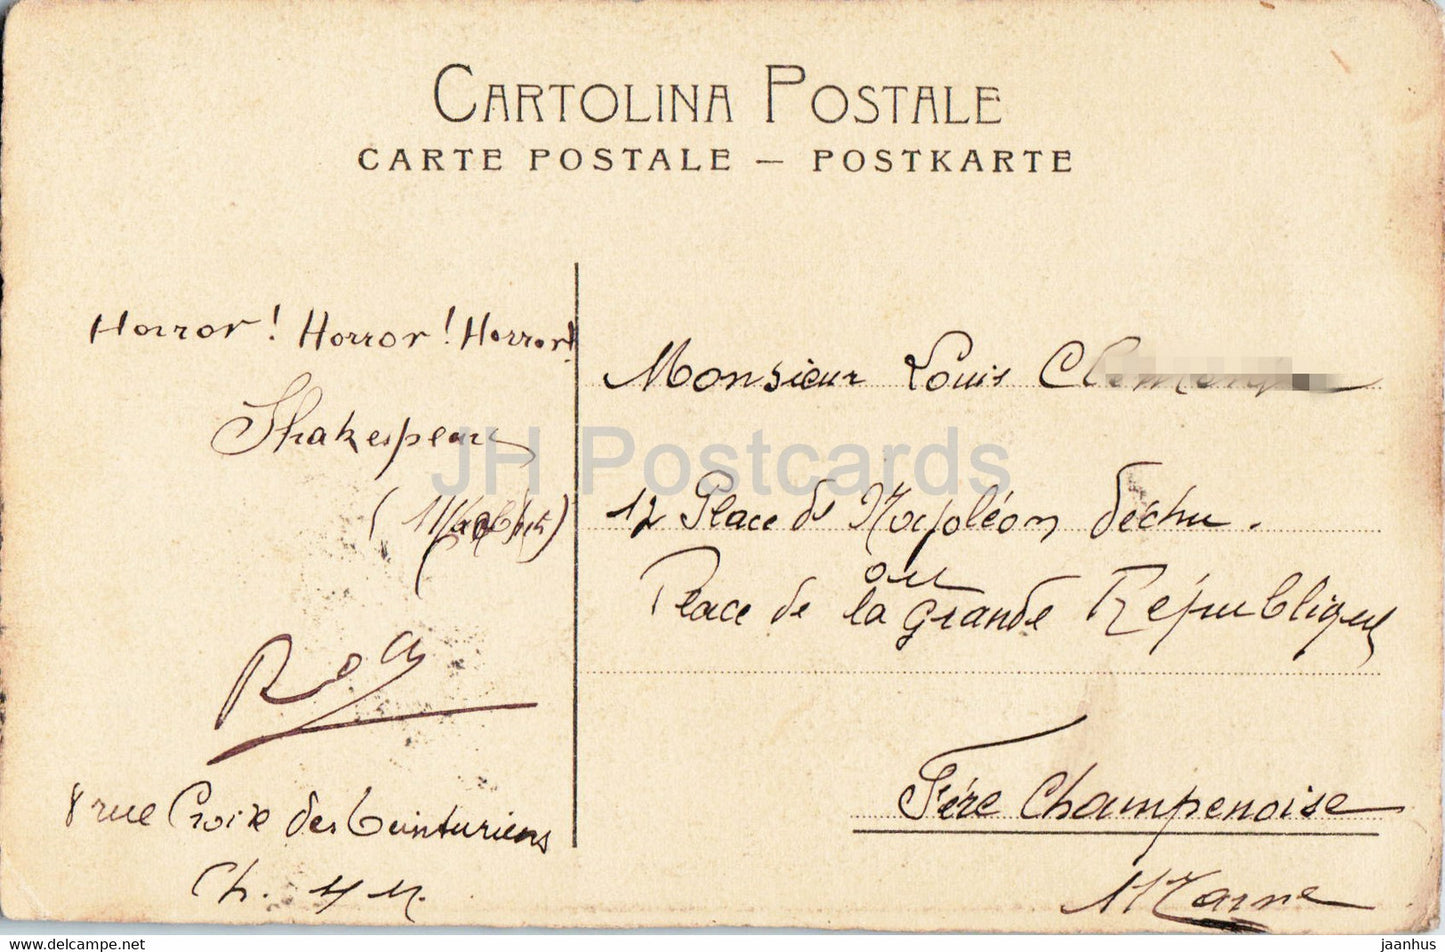 CARTOLINA POSTALE
CARTE POSTALE — POSTKARTE
Horror! Horror! Horror!
Shakespeare
(Macbeth)
8 rue Croix des Teinturiers
Ch. s/ M.
Monsieur Louis
12 Place de Napoléon déchu.
ou
Place de la Grande République
Fère Champenoise
Marne
JH Postcards
www.hippostcard.com
jaanhus